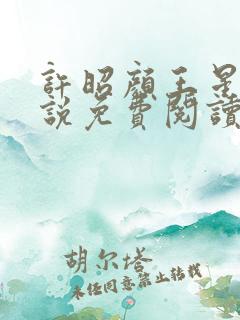 許昭顏王星
說免費閱讀
胡尔塔
未经同意禁止转载